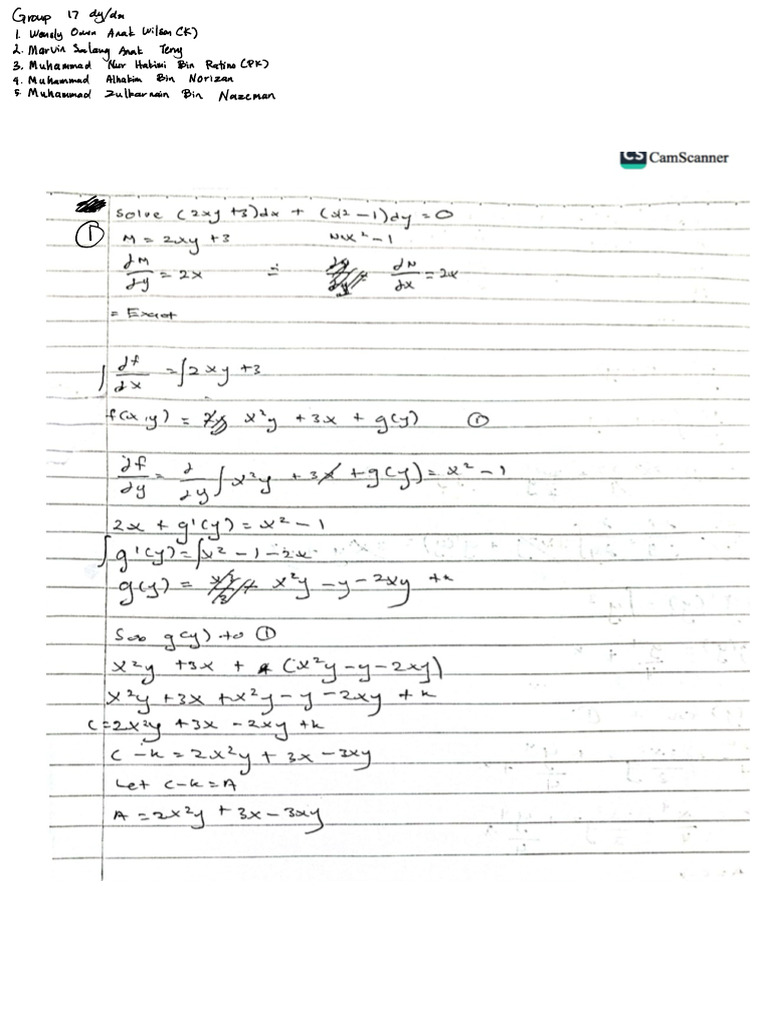 Group 17 dy/dx
1. Wendy Owen Anak Wilson (K)
2. Marvin Salang Anak Teny
3. Muhammad Nur Hakimi Bin Ratino (PK)
4. Muhammad Alhakim Bin Norizan
5. Muhammad Zulkarnain Bin Nazeman
CS CamScanner
Solve (2xy + 3)dx + (x² - 1)dy = 0
① M = 2xy + 3 N = x² - 1
∂M/∂y = 2x = ∂N/∂x = 2x
= Exact
∫ ∂f/∂x = ∫ 2xy + 3
f(x,y) = x²y + 3x + g(y) ①
∂f/∂y = ∂/∂y ∫ x²y + 3x + g(y) = x² - 1
2x + g'(y) = x² - 1
∫ g'(y) = ∫ x² - 1 - 2x
g(y) = x²y - y - 2xy + k
Sub g(y) to ①
x²y + 3x + (x²y - y - 2xy)
x²y + 3x + x²y - y - 2xy + k
C = 2x²y + 3x - 2xy + k
C - k = 2x²y + 3x - 3xy
Let C - k = A
A = 2x²y + 3x - 3xy